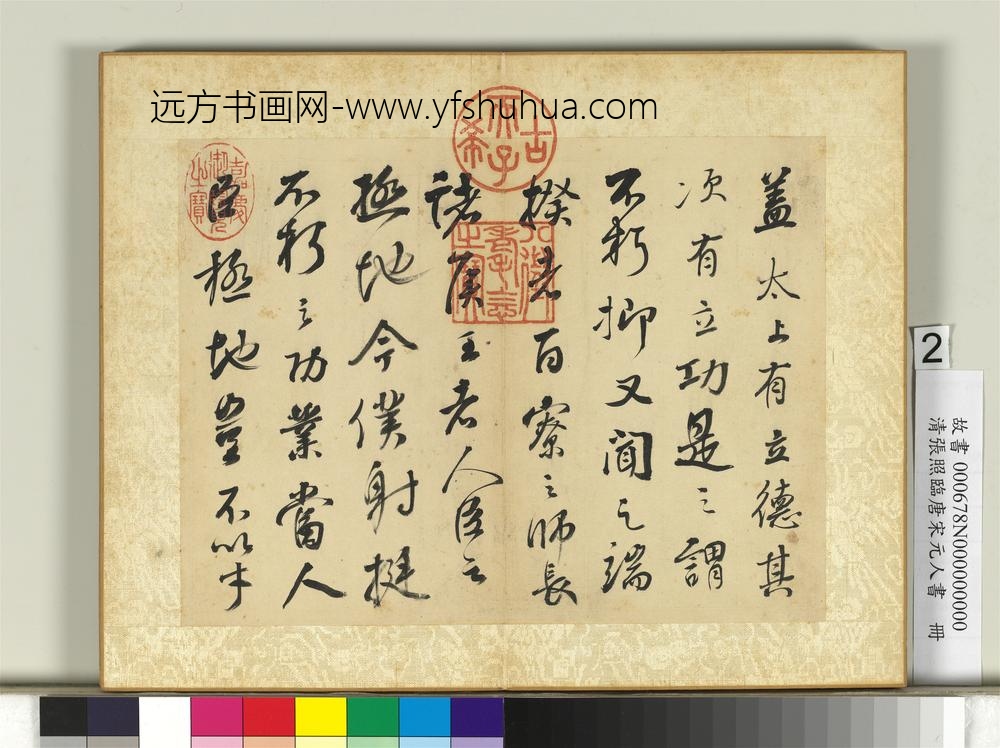 远方书画网-www.yfshuhua.com
蓋太上有立德其
次有立功是之謂
不朽抑又聞之端
揆者百寮之師長
諸侯王者人臣之
極地今僕射挺
不朽之功業當人
臣極地豈不以才
古希天子
八徵耄念之寶
嘉慶御覽之寶
2
故書 000678N000000000
清張照臨唐宋元人書 冊